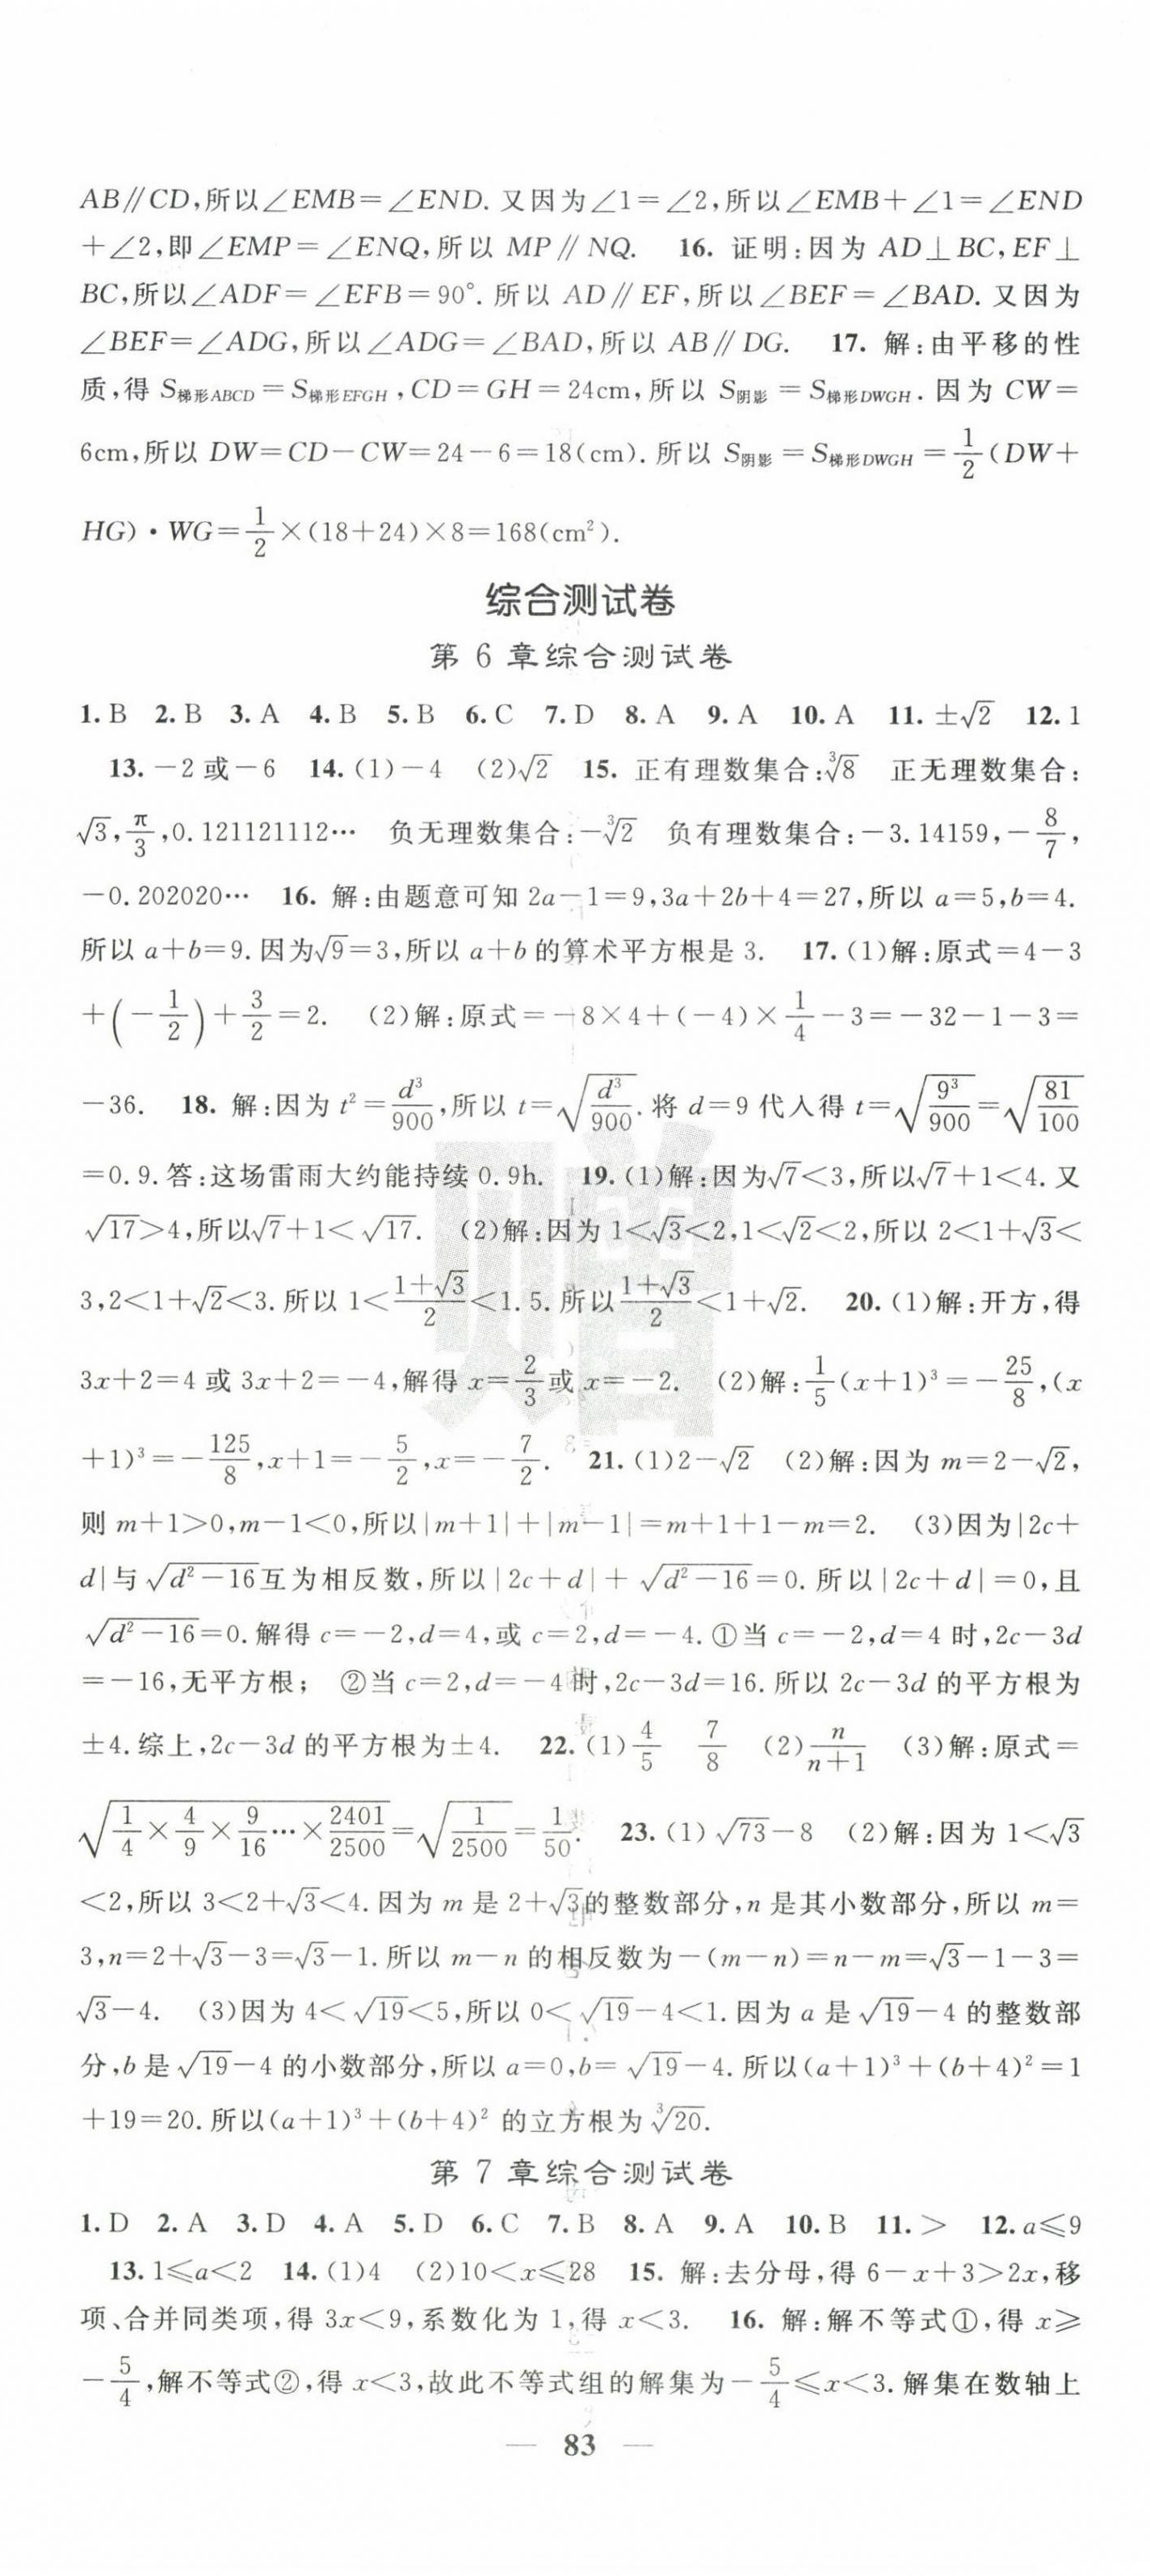 AB∥CD,所以∠EMB=∠END. 又因为∠1=∠2,所以∠EMB+∠1=∠END
+∠2,即∠EMP=∠ENQ,所以 MP∥NQ. 16. 证明:因为 AD⊥BC,EF⊥
BC,所以∠ADF=∠EFB=90°. 所以 AD∥EF,所以∠BEF=∠BAD. 又因为
∠BEF=∠ADG,所以∠ADG=∠BAD,所以 AB∥DG. 17. 解:由平移的性
质,得 S梯形ABCD=S梯形EFGH,CD=GH=24cm,所以 S阴影=S梯形DWGH. 因为 CW=
6cm,所以 DW=CD-CW=24-6=18(cm). 所以 S阴影=S梯形DWGH=1/2(DW+
HG)·WG=1/2×(18+24)×8=168(cm²).
综合测试卷
第 6 章综合测试卷
1. B 2. B 3. A 4. B 5. B 6. C 7. D 8. A 9. A 10. A 11. ±√2 12. 1
13. -2 或-6 14. (1)-4 (2)√2 15. 正有理数集合:∛8 正无理数集合:
√3,π/3,0.121121112… 负无理数集合:-∛2 负有理数集合:-3.14159,-8/7,
-0.202020… 16. 解:由题意可知 2a-1=9,3a+2b+4=27,所以 a=5,b=4.
所以 a+b=9. 因为√9=3,所以 a+b 的算术平方根是 3. 17. (1)解:原式=4-3
+(-1/2)+3/2=2. (2)解:原式=-8×4+(-4)×1/4-3=-32-1-3=
-36. 18. 解:因为 t²=d³/900,所以 t=√(d³/900). 将 d=9 代入得 t=√(9³/900)=√(81/100)
=0.9. 答:这场雷雨大约能持续 0.9h. 19. (1)解:因为√7<3,所以√7+1<4. 又
√17>4,所以√7+1<√17. (2)解:因为 1<√3<2,1<√2<2,所以 2<1+√3<
3,2<1+√2<3. 所以 1<(1+√3)/2<1.5. 所以(1+√3)/2<1+√2. 20. (1)解:开方,得
3x+2=4 或 3x+2=-4,解得 x=2/3或 x=-2. (2)解:1/5(x+1)³=-25/8,(x
+1)³=-125/8,x+1=-5/2,x=-7/2. 21. (1)2-√2 (2)解:因为 m=2-√2,
则 m+1>0,m-1<0,所以|m+1|+|m-1|=m+1+1-m=2. (3)因为|2c+
d|与√(d²-16)互为相反数,所以|2c+d|+√(d²-16)=0. 所以|2c+d|=0,且
√(d²-16)=0. 解得 c=-2,d=4,或 c=2,d=-4. ①当 c=-2,d=4 时,2c-3d
=-16,无平方根; ②当 c=2,d=-4 时,2c-3d=16. 所以 2c-3d 的平方根为
±4. 综上,2c-3d 的平方根为±4. 22. (1)4/5 7/8 (2)n/(n+1) (3)解:原式=
√(1/4×4/9×9/16…×2401/2500)=√(1/2500)=1/50. 23. (1)√73-8 (2)解:因为 1<√3
<2,所以 3<2+√3<4. 因为 m 是 2+√3的整数部分,n 是其小数部分,所以 m=
3,n=2+√3-3=√3-1. 所以 m-n 的相反数为-(m-n)=n-m=√3-1-3=
√3-4. (3)因为 4<√19<5,所以 0<√19-4<1. 因为 a 是√19-4 的整数部
分,b 是√19-4 的小数部分,所以 a=0,b=√19-4. 所以(a+1)³+(b+4)²=1
+19=20. 所以(a+1)³+(b+4)² 的立方根为∛20.
第 7 章综合测试卷
1. D 2. A 3. D 4. A 5. D 6. C 7. B 8. A 9. A 10. B 11. > 12. a≤9
13. 1≤a<2 14. (1)4 (2)10<x≤28 15. 解:去分母,得 6-x+3>2x,移
项、合并同类项,得 3x<9,系数化为 1,得 x<3. 16. 解:解不等式①,得 x≥
-5/4,解不等式②,得 x<3,故此不等式组的解集为-5/4≤x<3. 解集在数轴上
— 83 —
赠